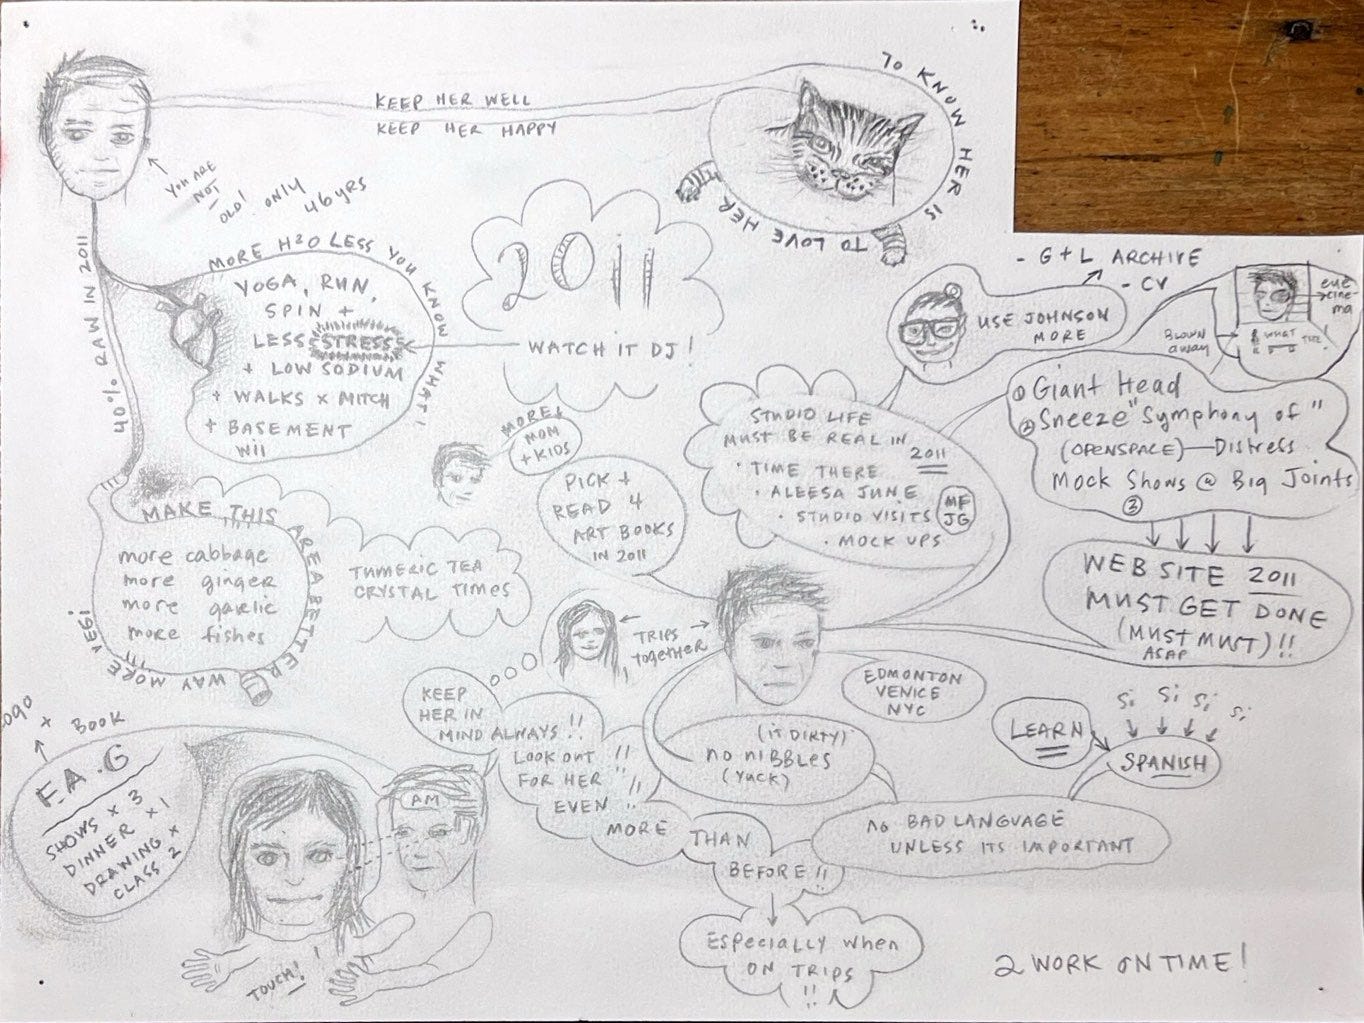 KEEP HER WELL
KEEP HER HAPPY
TO KNOW HER IS TO LOVE HER
YOU ARE
NOT
OLD! ONLY
46 YRS
40% RAW IN 2011
MORE H2O LESS YOU KNOW WHAT!
YOGA, RUN,
SPIN +
LESS STRESS
+ LOW SODIUM
+ WALKS x MITCH
+ BASEMENT
WII
2011
WATCH IT DJ!
- G+L ARCHIVE
- CV
USE JOHNSON
MORE
eye
cine-
ma
BLOWN
away
WHAT
① Giant Head
② Sneeze "Symphony of"
(OPENSPACE) — Distress
Mock Shows @ Big Joints
③
STUDIO LIFE
MUST BE REAL IN
2011
• TIME THERE
• ALEESA JUNE
• STUDIO VISITS
MF
JG
• MOCK UPS
MORE
MOM
+ KIDS
PICK +
READ 4
ART BOOKS
IN 2011
WEB SITE 2011
MUST GET DONE
(MUST MUST)!!
ASAP
MAKE THIS AREA BETTER
more cabbage
more ginger
more garlic
more fishes
WAY MORE VEG!
TUMERIC TEA
CRYSTAL TIMES
TRIPS
TOGETHER
EDMONTON
VENICE
NYC
KEEP
HER IN
MIND ALWAYS!!
LOOK OUT
FOR HER
EVEN
MORE THAN
BEFORE!!
ESPECIALLY WHEN
ON TRIPS
!!
(IT DIRTY)
NO NIBBLES
(YUCK)
LEARN
Si Si Si Si
SPANISH
NO BAD LANGUAGE
UNLESS ITS IMPORTANT
LOGO
+ BOOK
F.A.G
SHOWS x 3
DINNER x 1
DRAWING x
CLASS 2
AM
TOUCH!!
2 WORK ON TIME!